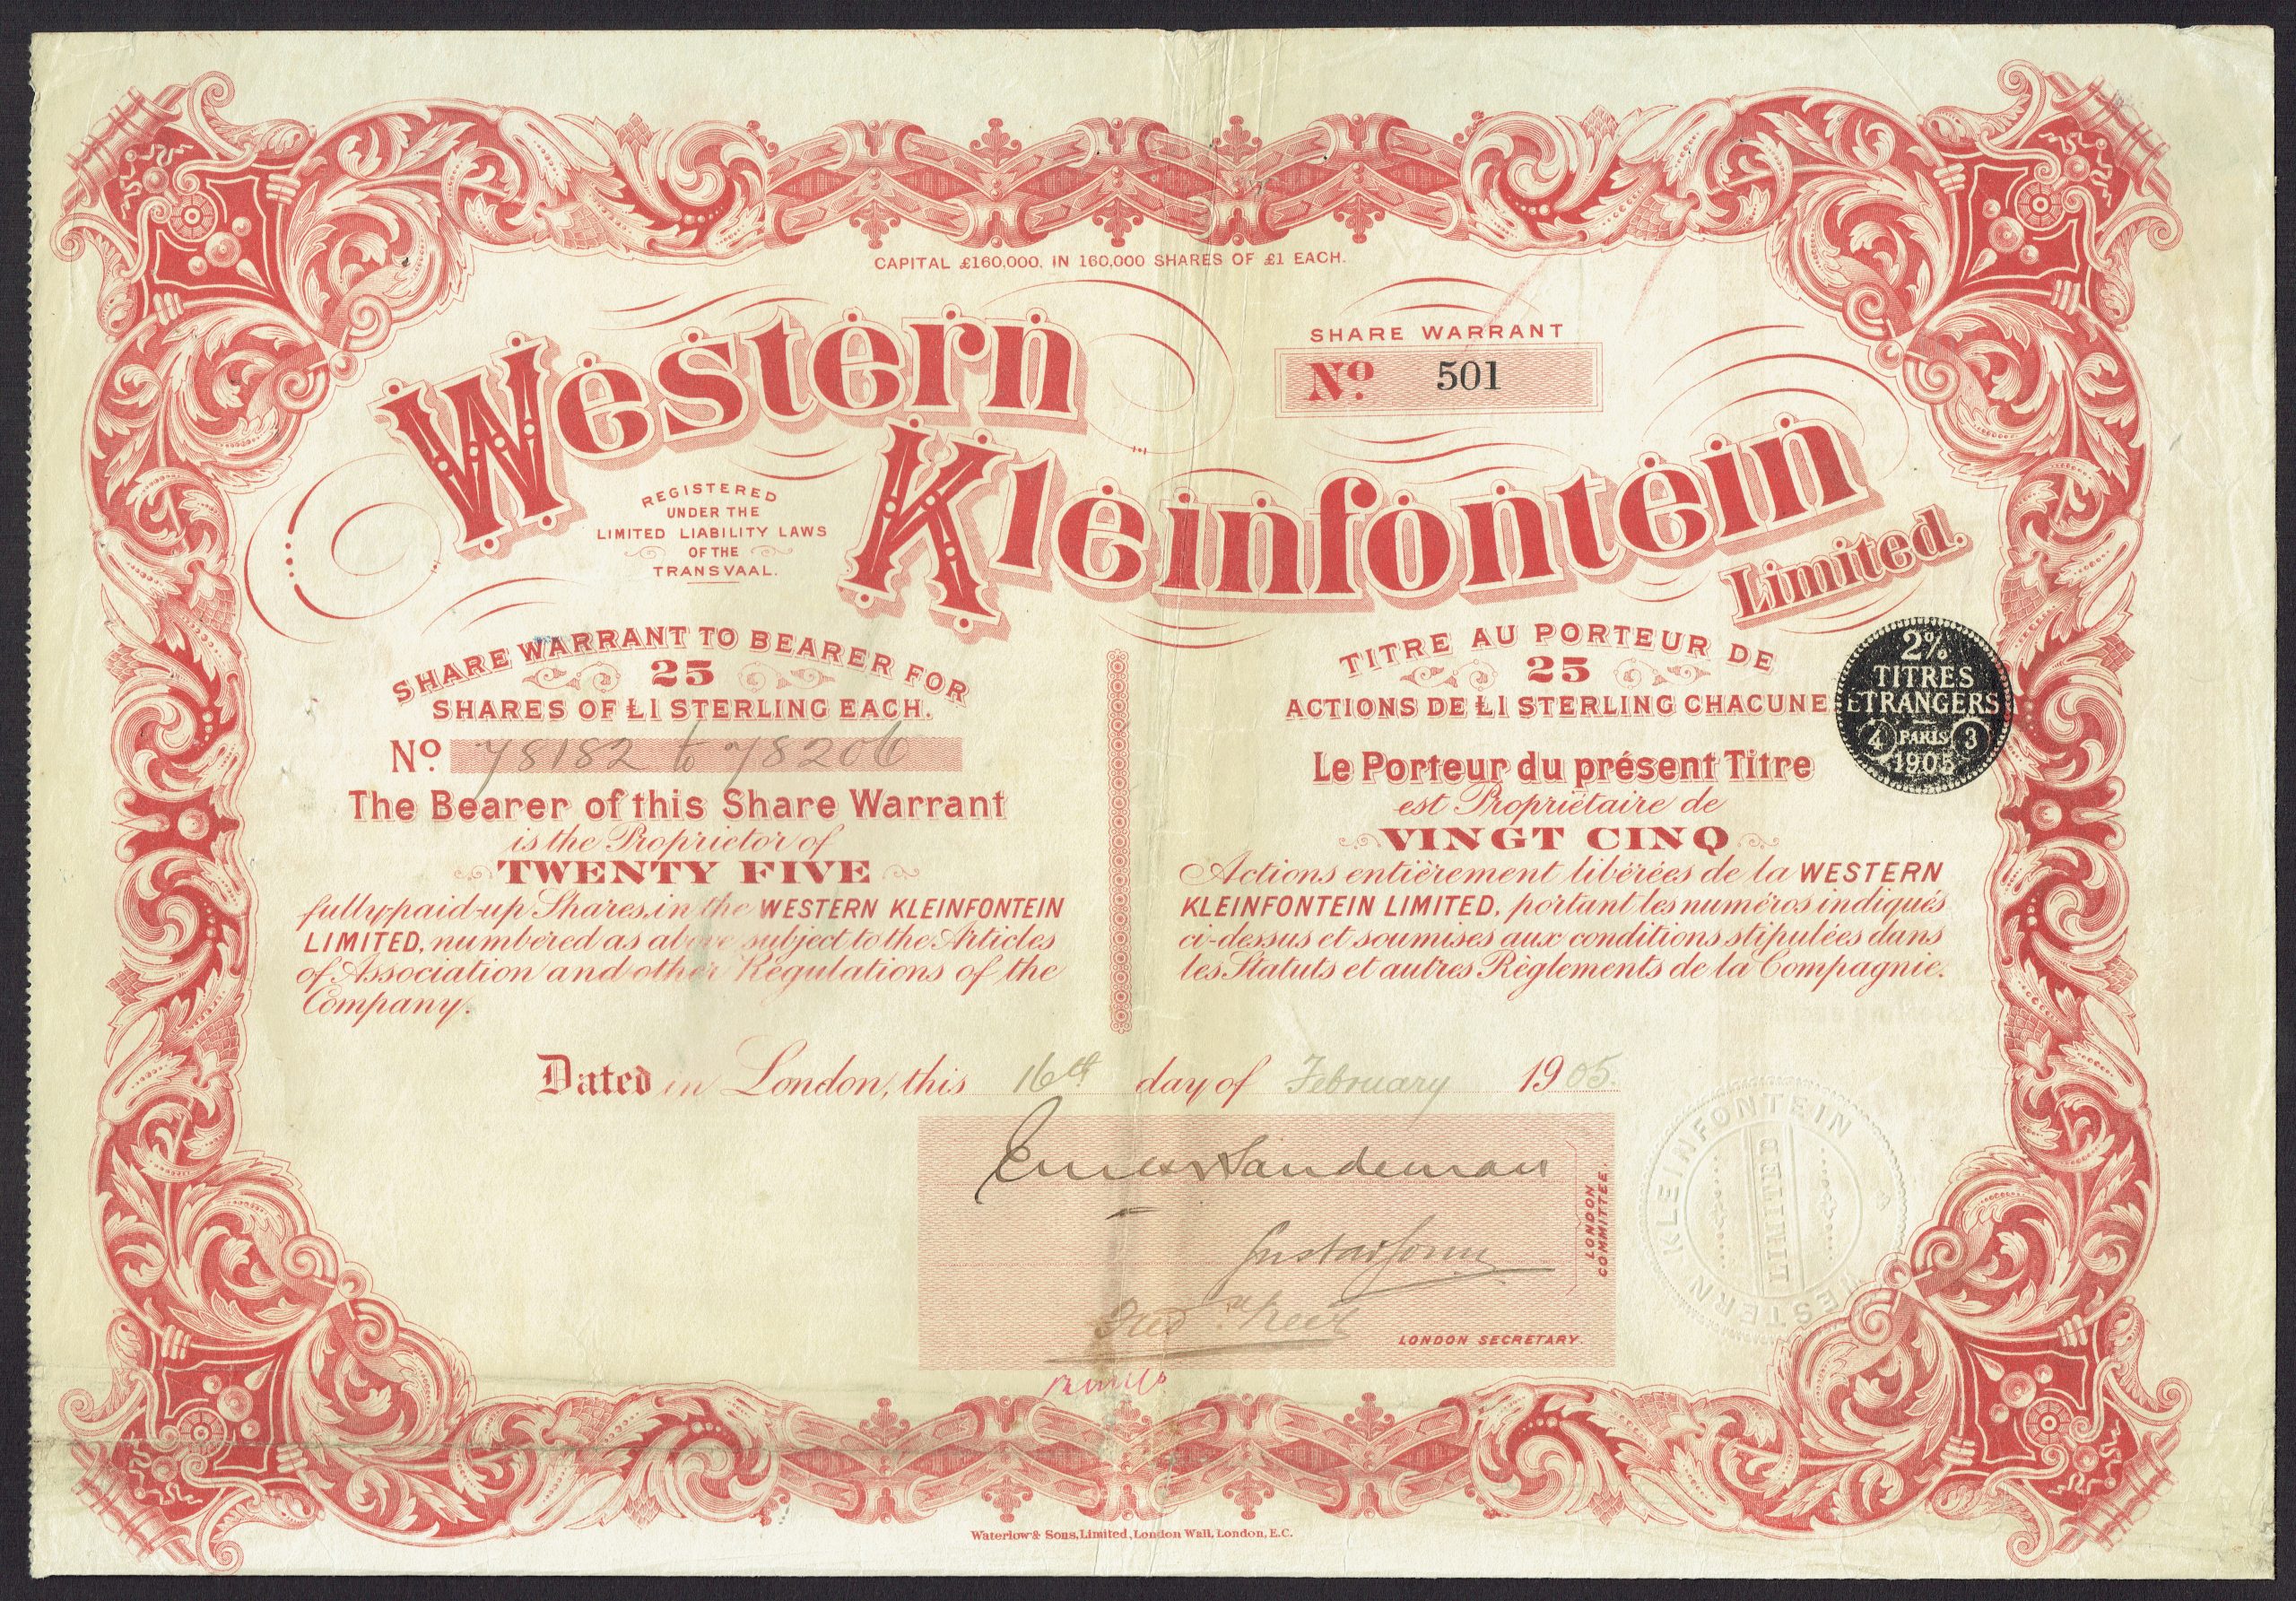 CAPITAL £160,000, IN 160,000 SHARES OF £1 EACH.
Western
Kleinfontein
Limited.
SHARE WARRANT
No. 501
REGISTERED
UNDER THE
LIMITED LIABILITY LAWS
OF THE
TRANSVAAL.
SHARE WARRANT TO BEARER FOR
25
SHARES OF £1 STERLING EACH.
No. 78182 to 78206
The Bearer of this Share Warrant
is the Proprietor of
TWENTY FIVE
fully-paid-up Shares, in the WESTERN KLEINFONTEIN
LIMITED, numbered as above subject to the Articles
of Association and other Regulations of the
Company.
TITRE AU PORTEUR DE
25
ACTIONS DE £1 STERLING CHACUNE
Le Porteur du présent Titre
est Propriétaire de
VINGT CINQ
Actions entièrement libérées de la WESTERN
KLEINFONTEIN LIMITED, portant les numéros indiqués
ci-dessus et soumises aux conditions stipulées dans
les Statuts et autres Règlements de la Compagnie.
2%
TITRES
ETRANGERS
4 PARIS 3
1905
Dated in London, this 16th day of February 1905.
Sandeman
LONDON
COMMITTEE.
LONDON SECRETARY.
WESTERN KLEINFONTEIN
LIMITED
Waterlow & Sons, Limited, London Wall, London, E.C.